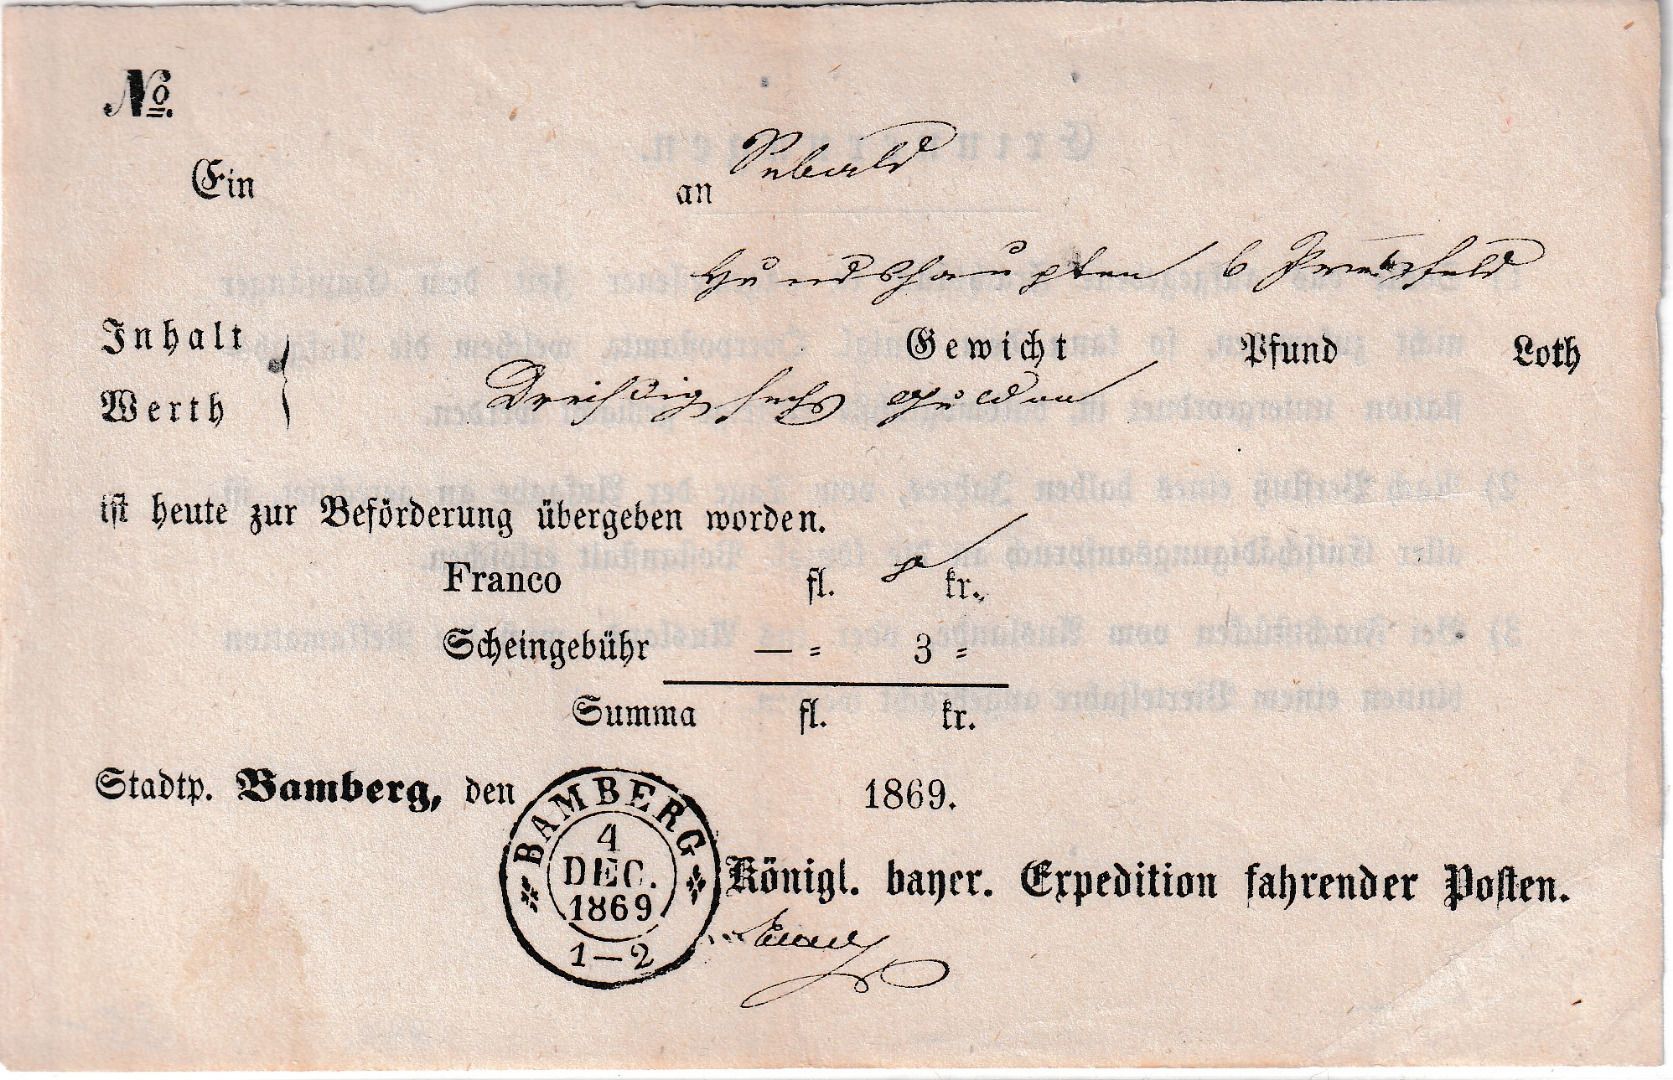 No.
Ein an Sebald
Hundshaupten b Pretzfeld
Inhalt Gewicht Pfund Loth
Werth Dreißig sechs Gulden
ist heute zur Beförderung übergeben worden.
Franco fl. kr.
Scheingebühr — = 3 =
Summa fl. kr.
Stadtp. Bamberg, den 1869.
BAMBERG
4
DEC.
1869
1—2
Königl. bayer. Expedition fahrender Posten.